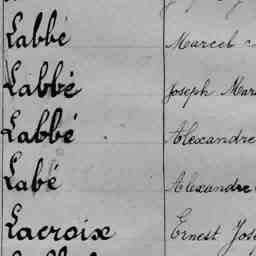 Labbé Marcel
Labbé Joseph
Labbé Alexandre
Labé Alexandre
Lacroix Ernest